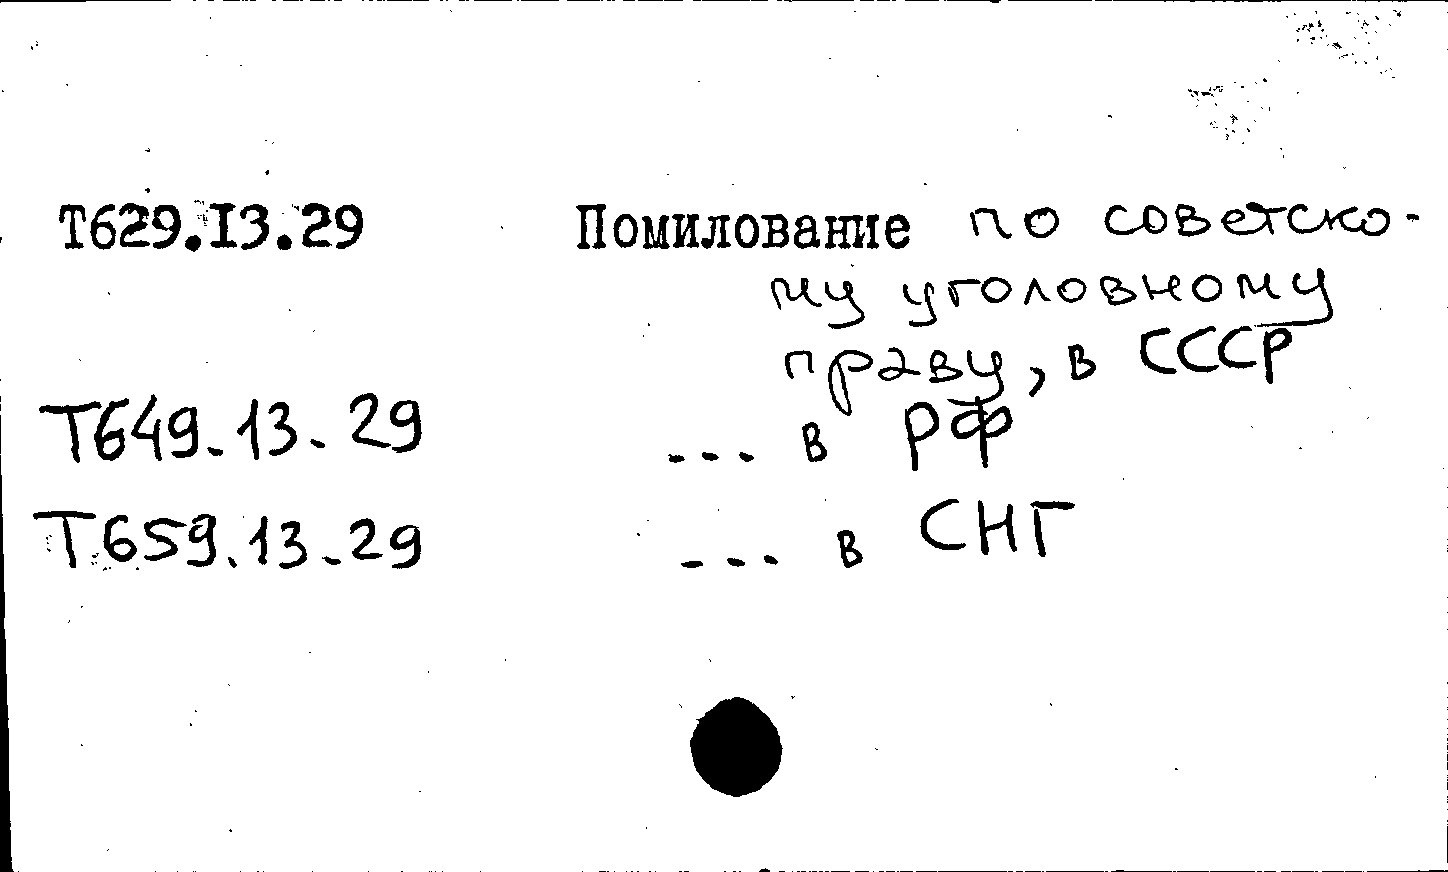 Т629.I3.29 Помилование по советско-
му уголовному
праву, в СССР
Т649.13.29 --- в РФ
Т659.13.29 --- в СНГ